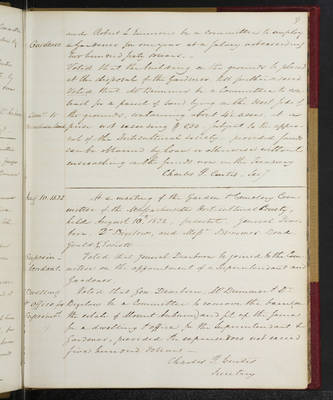 9
and Robert L. Emmons be a Committee to employ
Gardener a Gardener for one year at a salary not exceeding
two hundred fifty dollars. —
Voted that the building on the grounds be placed
at the disposal of the Gardener
Voted that Mr Brimmer be a Committee to
for a parcel of land lying on the West side of
the grounds, containing about acres at
price not exceeding $ 500 subject to the
of the Horticultural Society, provided
can be obtained by loan or otherwise without
encroaching on the funds now in the Treasury
Charles P. Curtis, Secy
Aug. 10. 1832 At a meeting of the Garden & Cemetery Com
mittee of the Massachusetts Horticultural Society,
held August 10th 1832, present, General Dear
born, Dr Bigelow, and Messrs Brimmer, Bond
Gould & Everett
Superin- Voted that General Dearborn be joined to the Com
tendent mittee on the appointment of a Superintendent and
Gardener
Dwelling Voted that Gen Dearborn, Mr Brimmer & Dr
& Office for Bigelow be a Committee to remove the house on
Superintt the estate of Mount Auburn, and fit up the same
for a dwelling & office for the Superintendent &
Gardener, provided the expense does not exceed
five hundred dollars —
Charles P. Curtis
Secretary